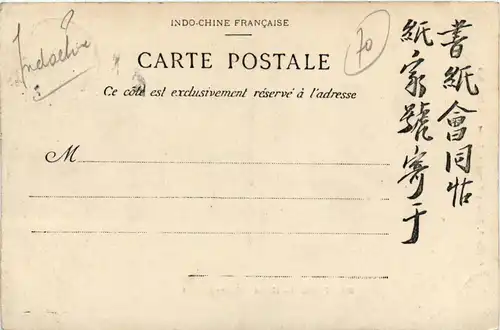 INDO-CHINE FRANÇAISE
CARTE POSTALE
Ce côté est exclusivement réservé à l'adresse
M
Indochine
70
書紙會同帖
紙家號寄于